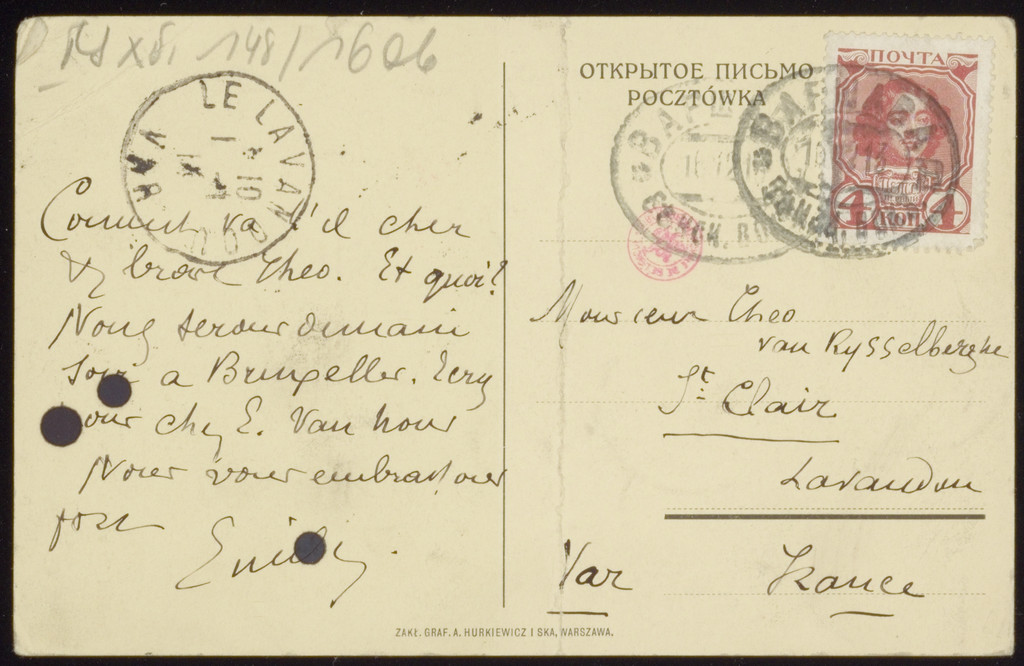 148/1606
LE LAVANDOU
VAR
ОТКРЫТОЕ ПИСЬМО
POCZTÓWKA
ПОЧТА
4 КОП 4
Comment va t'il cher
& brave Theo. Et quoi?
Nous serons demain
soir a Bruxelles. Ecry
nous chez E. Van
Nous vous embrassons
fort
Monsieur Theo
van Rysselberghe
St Clair
Lavandou
Var France
ZAKŁ. GRAF. A. HURKIEWICZ I SKA, WARSZAWA.